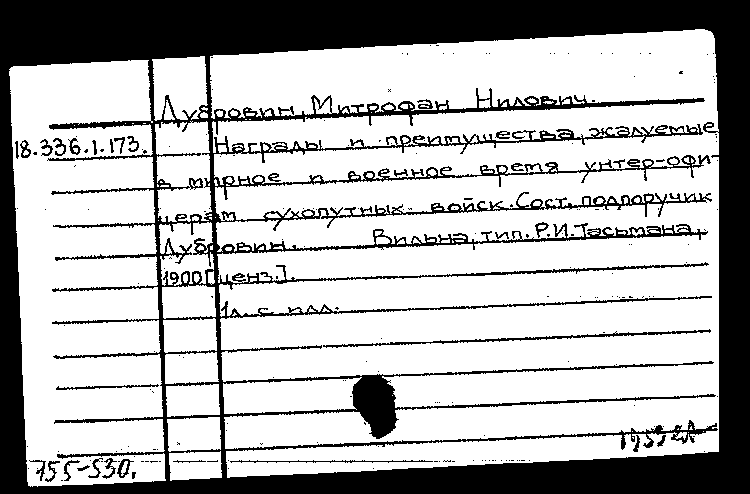 Дубровин, Митрофан Нилович.
18.336.1.173. Награды и преимущества, жалуемые
в мирное и военное время унтер-офи-
церам сухопутных войск. Сост. подпоручик
Дубровин. Вильна, тип. Р.И. Тасьмана,
1900 [ценз.].
1л. с илл.
155-530.